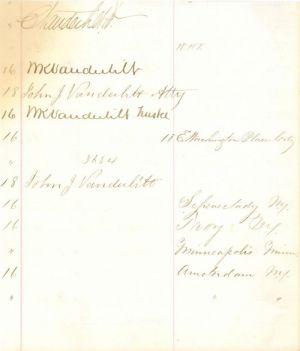 Vanderbilt
16 WKVanderbilt
18 John J Vanderbilt Atty
16 WKVanderbilt Trustee
16 E Washington Place City
"
3684
18 John J Vanderbilt
16 Schenectady Ny.
16 Troy Ny.
" Minneapolis Minn
16 Amsterdam Ny
" " "